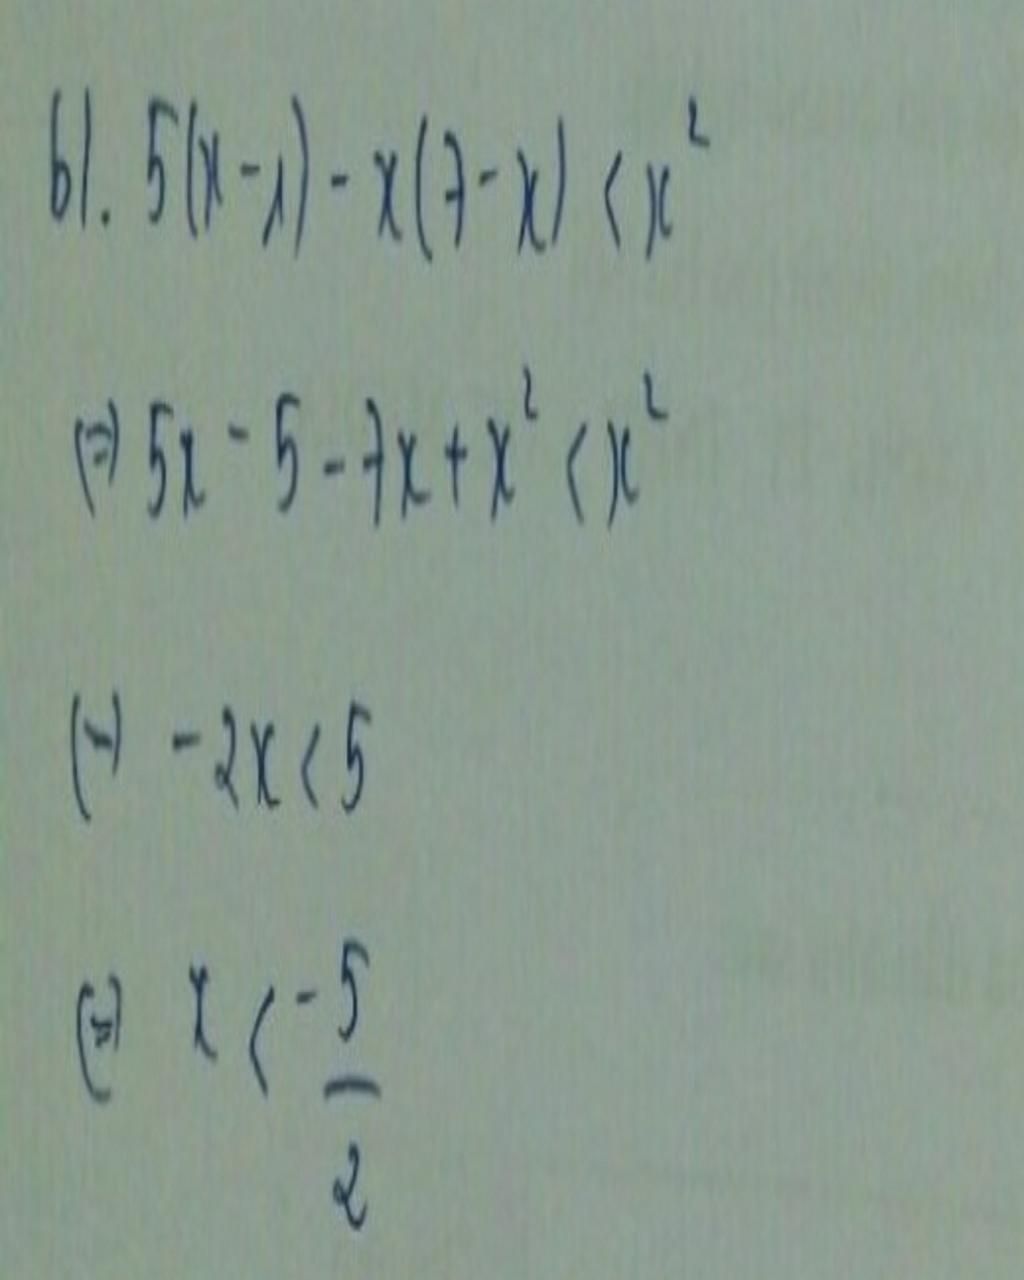 b). 5(x-1) - x(7-x) < x²
⇔ 5x - 5 - 7x + x² < x²
⇔ -2x < 5
⇔ x < -5/2